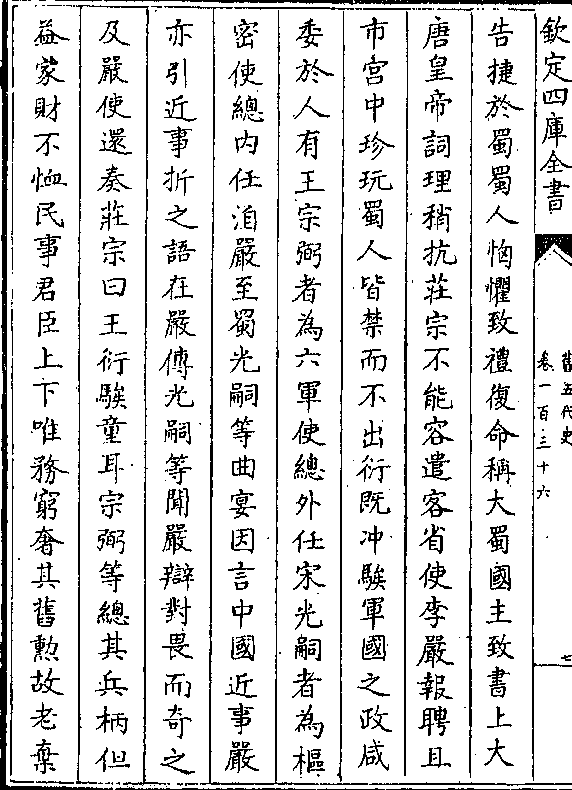 欽定四庫全書
舊五代史
卷一百三十六
七
告捷於蜀蜀人恟懼致禮復命稱大蜀國主致書上大
唐皇帝詞理稍抗莊宗不能容遣客省使李嚴報聘且
市宮中珍玩蜀人皆禁而不出衍既冲騃軍國之政咸
委於人有王宗弼者為六軍使總外任宋光嗣者為樞
密使總内任洎嚴至蜀光嗣等曲宴因言中國近事嚴
亦引近事折之語在嚴傳光嗣等聞嚴辯對畏而奇之
及嚴使還奏莊宗曰王衍騃童耳宗弼等總其兵柄但
益家財不恤民事君臣上下唯務窮奢其舊勲故老棄